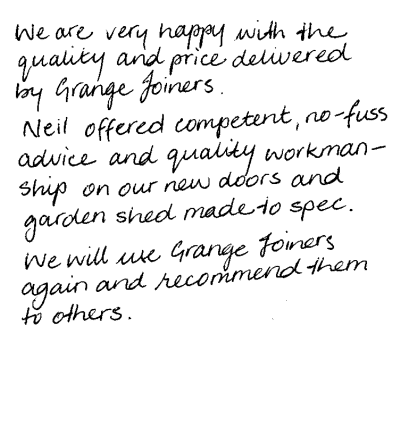 We are very happy with the
quality and price delivered
by Grange Joiners.
Neil offered competent, no-fuss
advice and quality workman-
ship on our new doors and
garden shed made to spec.
We will use Grange Joiners
again and recommend them
to others.